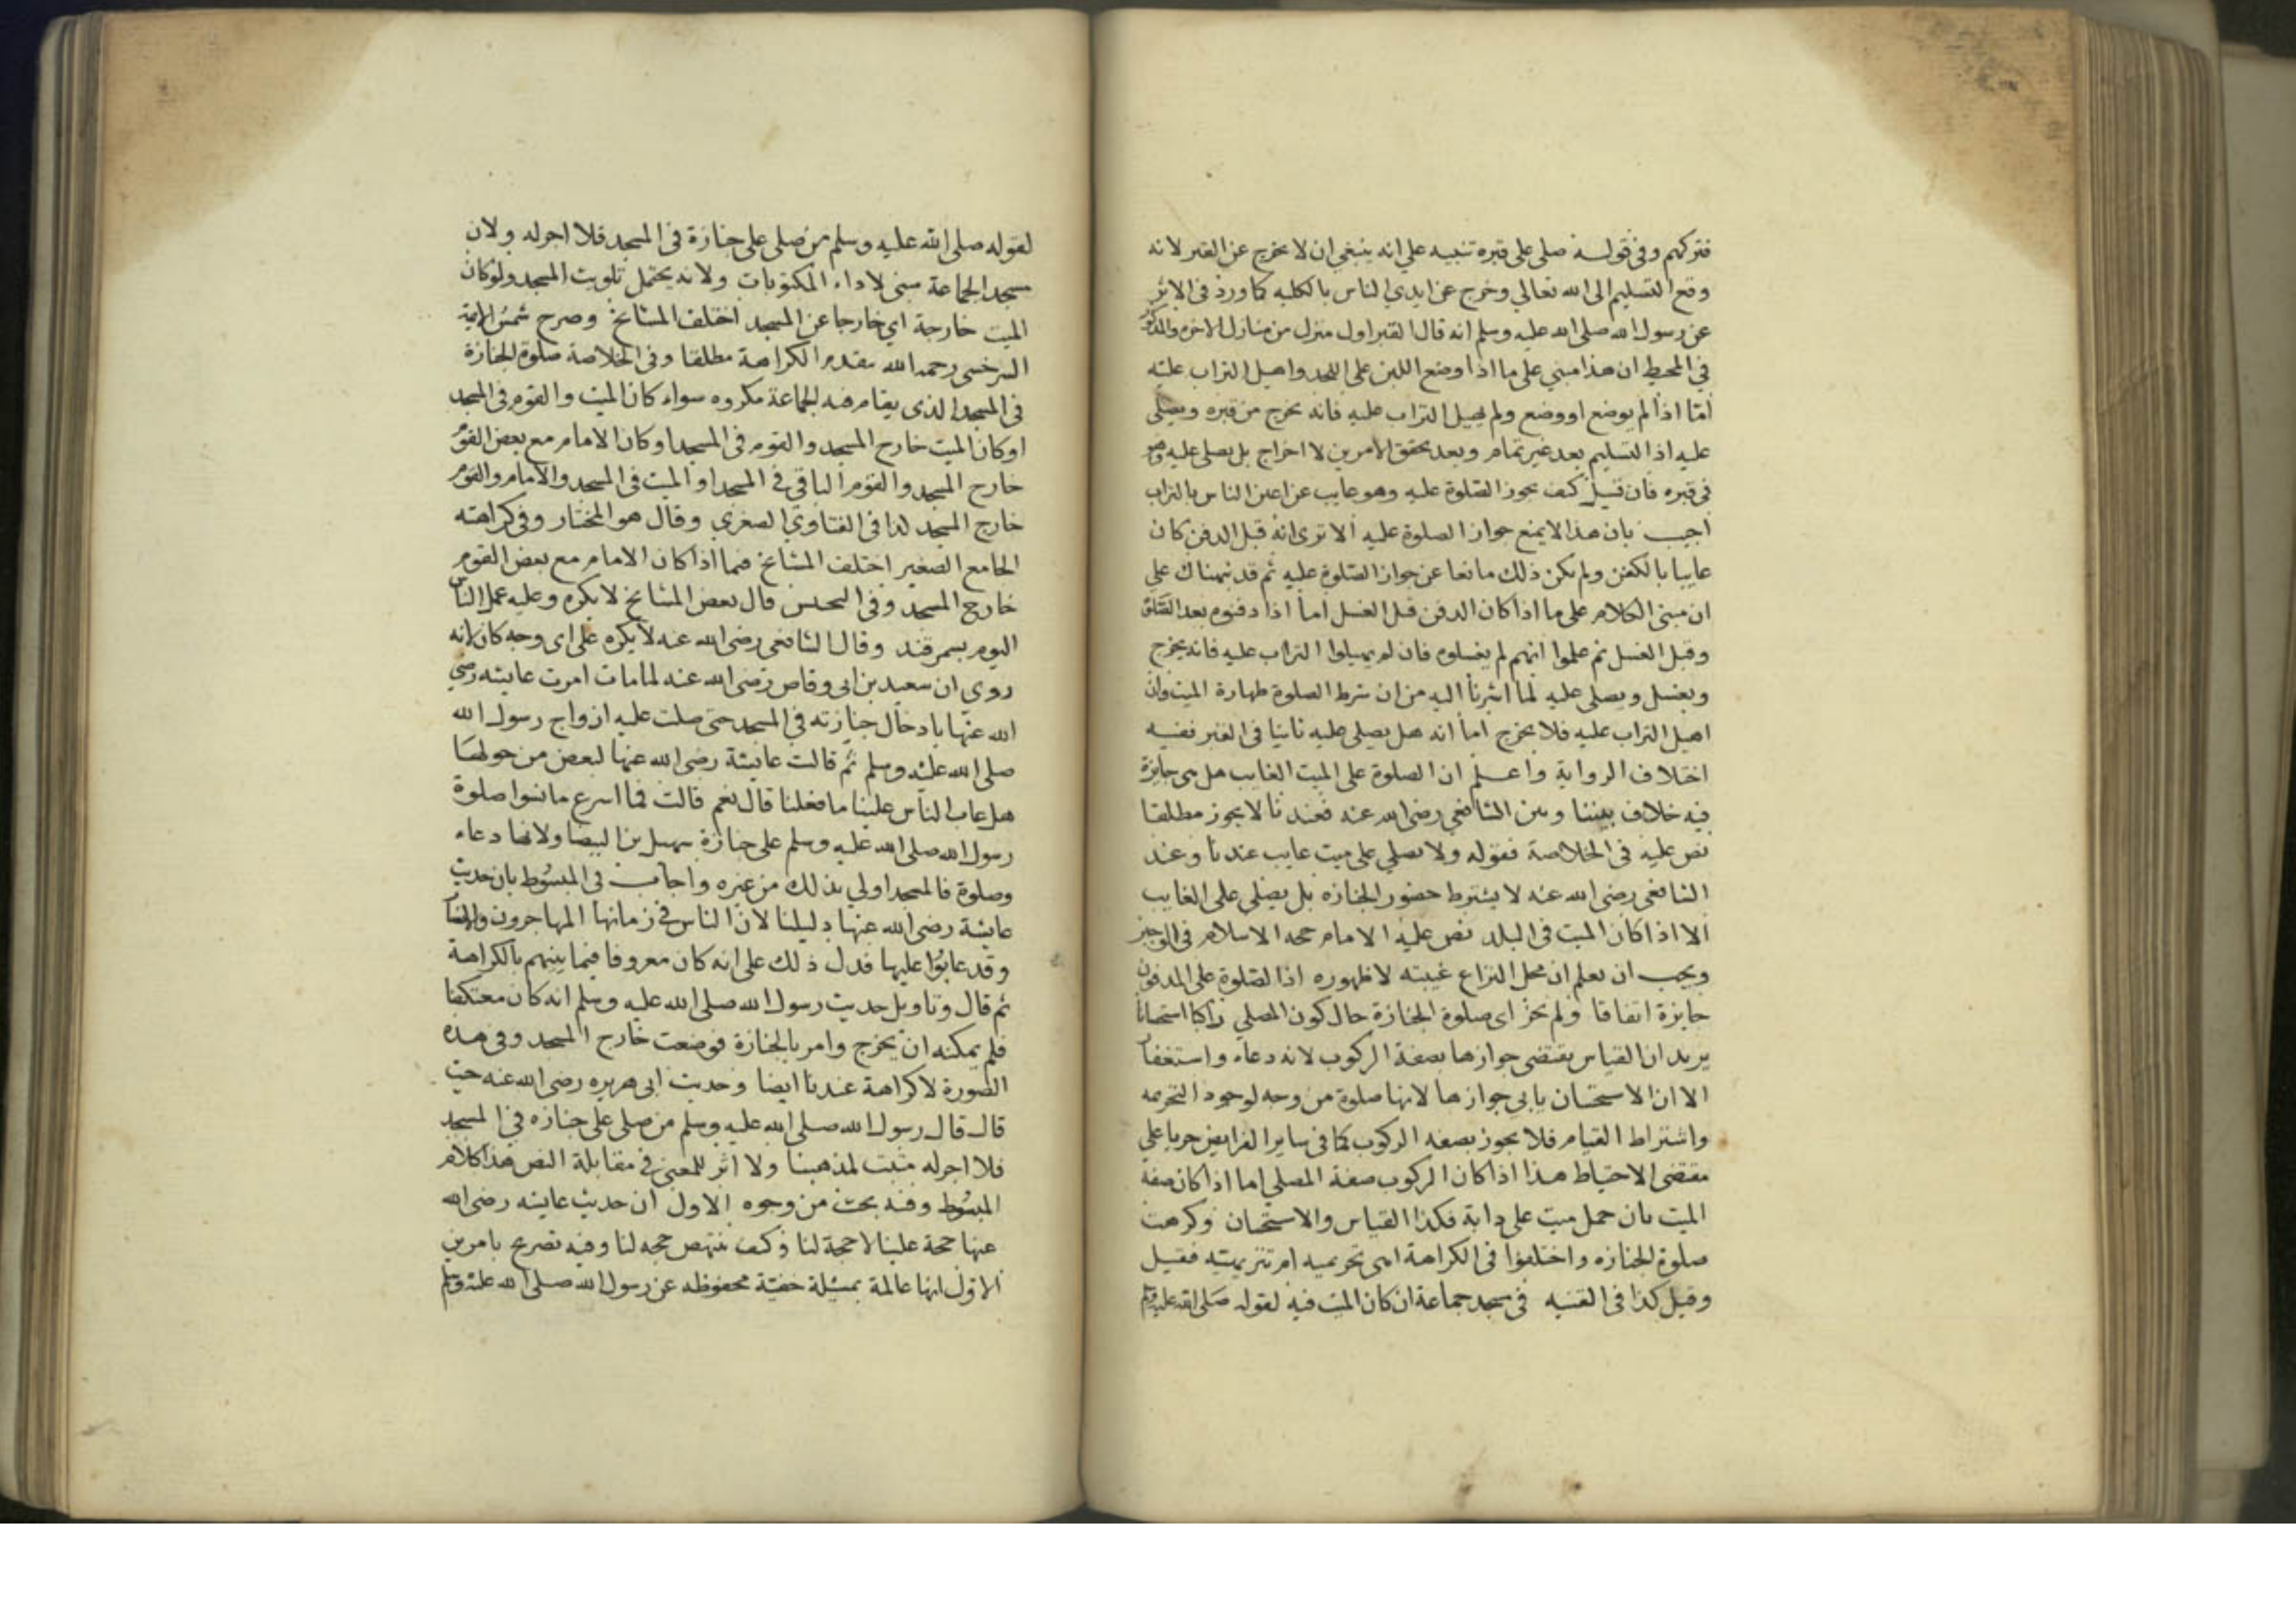 فتركهم وفي قوله صلى على قبره تنبيه علي انه ينبغي ان لا يخرج عن القبر لانه
وقع التسليم الى الله تعالي وخرج عن ايدي الناس بالكليه كما ورد في الاثر
عن رسول الله صلى الله عليه وسلم انه قال القبر اول منزل من منازل الاخره والمذكور
في المحيط ان هذا مبني على ما اذا وضع اللبن على اللحد واهيل التراب عليه
امّا اذا لم يوضع او وضع ولم يهيل التراب عليه فانه يخرج من قبره ويصلى
عليه اذ التسليم بعد غير تمام وبعد تحقق الامرين لا اخراج بل يصلى عليه وهو
في قبره فان قيل كيف يجوز الصلوة عليه وهو غايب عن اعين الناس بالتراب
اجيب بان هذا لا يمنع جواز الصلوة عليه الا ترى انه قبل الدفن كان
غايبا بالكفن ولم يكن ذلك مانعا عن جواز الصلوة عليه ثم قد نبهناك على
ان مبنى الكلام على ما اذا كان الدفن قبل الغسل اما اذا دفنوه بعد الصلوة
وقبل الغسل ثم علموا انهم لم يغسلوه فان لم يهيلوا التراب عليه فانه يخرج
ويغسل ويصلى عليه لما اشرنا اليه من ان شرط الصلوة طهارة الميت وان
اهيل التراب عليه فلا يخرج اما انه هل يصلى عليه ثانيا في القبر ففيه
اختلاف الرواية واعلم ان الصلوة على الميت الغايب هل هي جايزة
فيه خلاف بيننا وبين الشافعي رضى الله عنه فعندنا لا يجوز مطلقا
نص عليه في الخلاصة فقوله ولا يصلي على ميت غايب عندنا وعند
الشافعي رضى الله عنه لا يشترط حضور الجنازه بل يصلى على الغايب
الا اذا كان الميت في البلد نص عليه الامام حجه الاسلام في الوجيز
ويجب ان يعلم ان محل النزاع غيبته لا ظهوره اذ الصلوة على المدفون
جايزة اتفاقا ولم تجز اى صلوة الجنازة حال كون المصلي راكبا استحسانا
يريد ان القياس يقتضى جوازها بصفة الركوب لانه دعاء واستغفار
الا ان الاستحسان يابى جوازها لانها صلوة من وجه لوجود التحريمه
واشتراط القيام فلا يجوز بصفه الركوب كما في ساير الفرايض جريا علي
مقتضى الاحتياط هذا اذا كان الركوب صفة المصلى اما اذا كان صفة
الميت بان حمل ميت على دابة فكذا القياس والاستحسان وكرهت
صلوة الجنازه واختلفوا في الكراهة اهى تحريميه ام تنزيهيته فقيل
وقيل كذا في القنيه في مسجد جماعة ان كان الميت فيه لقوله صلى الله عليه وسلم
لقوله صلى الله عليه وسلم من صلى على جنازة في المسجد فلا اجر له ولان
مسجد الجماعة مبنى لاداء المكتوبات ولانه يحتمل تلويث المسجد ولو كان
الميت خارجة اي خارجا عن المسجد اختلف المشايخ وصرح شمس الايمة
السرخسى رحمه الله بتقدير الكراهة مطلقا وفي الخلاصة صلوة الجنازة
في المسجد الذى يقام فيه الجماعة مكروه سواء كان الميت والقوم في المسجد
او كان الميت خارج المسجد والقوم في المسجد او كان الامام مع بعض القوم
خارج المسجد والقوم الباقي في المسجد او الميت في المسجد والامام والقوم
خارج المسجد كذا في الفتاوي الصغري وقال هو المختار وفي كراهته
الجامع الصغير اختلف المشايخ فيما اذا كان الامام مع بعض القوم
خارج المسجد وفي التجنيس قال بعض المشايخ لا يكره وعليه عمل الناس
اليوم بسمرقند وقال الشافعي رضى الله عنه لا يكره على اى وجه كان لانه
روي ان سعيد بن ابى وقاص رضى الله عنه لما مات امرت عايشه رضي
الله عنها بادخال جنازته في المسجد حتى صلت عليه ازواج رسول الله
صلى الله عليه وسلم ثم قالت عايشة رضى الله عنها لبعض من حولها
هل عاب الناس علينا ما فعلنا قال نعم قالت فما اسرع ما نسوا صلوة
رسول الله صلى الله عليه وسلم على جنازة سهيل بن البيضا ولانها دعاء
وصلوة فالمسجد اولى بذلك من غيره واجاب في المبسوط بان حديث
عايشة رضى الله عنها دليلنا لان الناس في زمانها المهاجرون والانصار
وقد عابوا عليها فدل ذلك على انه كان معروفا فيما بينهم بالكراهة
ثم قال وتاويل حديث رسول الله صلى الله عليه وسلم انه كان معتكفا
فلم يمكنه ان يخرج وامر بالجنازة فوضعت خارج المسجد وفي هذه
الصورة لا كراهة عندنا ايضا وحديث ابى هريره رضى الله عنه حيث
قال قال رسول الله صلى الله عليه وسلم من صلى على جنازه في المسجد
فلا اجر له مثبت لمذهبنا ولا اثر للمعنى في مقابلة النص هذا كلام
المبسوط وفيه بحث من وجوه الاول ان حديث عايشه رضى الله
عنها حجة علينا لا حجة لنا وكيف ينتهض حجه لنا وفيه تصريح بامرين
الاول انها عالمة بمسئلة خفية محفوظه عن رسول الله صلى الله عليه وسلم